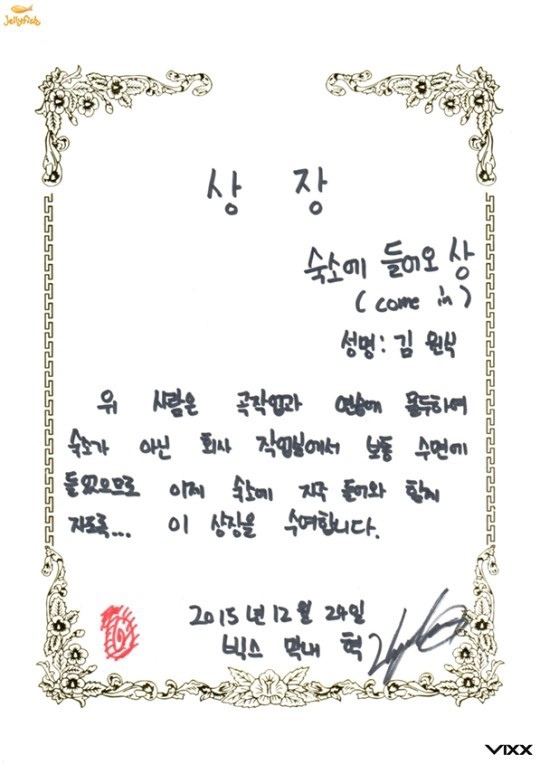 Jellyfish
상 장
숙소에 들어오 상
(come in)
성명: 김 원식
위 사람은 곡작업과 연습에 몰두하여
숙소가 아닌 회사 작업실에서 보통 수면에
들었으므로 이제 숙소에 자주 들어와 함께
자도록... 이 상장을 수여합니다.
2015년 12월 24일
빅스 막내 혁
VIXX